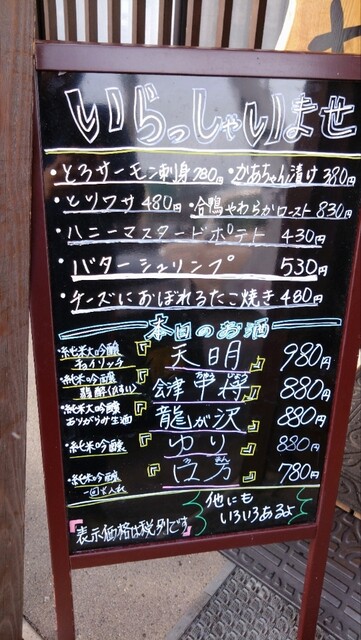 いらっしゃいませ
・とろサーモン刺身780円 ・かあちゃん漬け380円
・とりワサ 480円 ・合鴨やわらかロースト 830円
・ハニーマスタードポテト 430円
・バターシュリンプ 530円
・チーズにおぼれるたこ焼き 480円
本日のお酒
・純米大吟醸 『天明』 980円
・純米吟醸 会津 880円
・純米大吟醸 おりがらみ生酒 龍が沢 880円
・純米吟醸 ゆり 880円
・純米吟醸 一回火入れ 『 』 780円
他にも
いろいろあるよ
『表示価格は税別です』